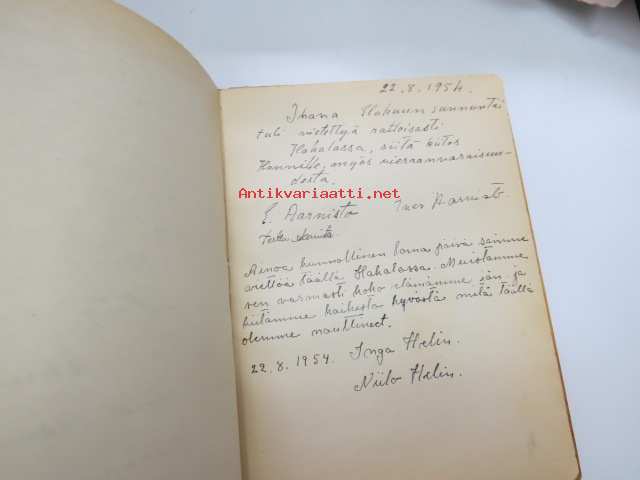 22.8.1954.
Ihana Elokuun sunnuntai
tuli vietettyä rattoisasti
Hakalassa, siitä kiitos
Hannille, myös vieraanvaraisuu-
desta.
Antikvariaatti.net
E. Aarnisto Ines Aarnisto
Ainoa kunnollinen loma päivä saimme
viettää täällä Hakalassa. Muistamme
sen varmasti koko elämämme iän ja
kiitämme kaikesta hyvästä mitä täällä
olemme nauttineet.
22.8.1954. Inga Helin.
Niilo Helin.